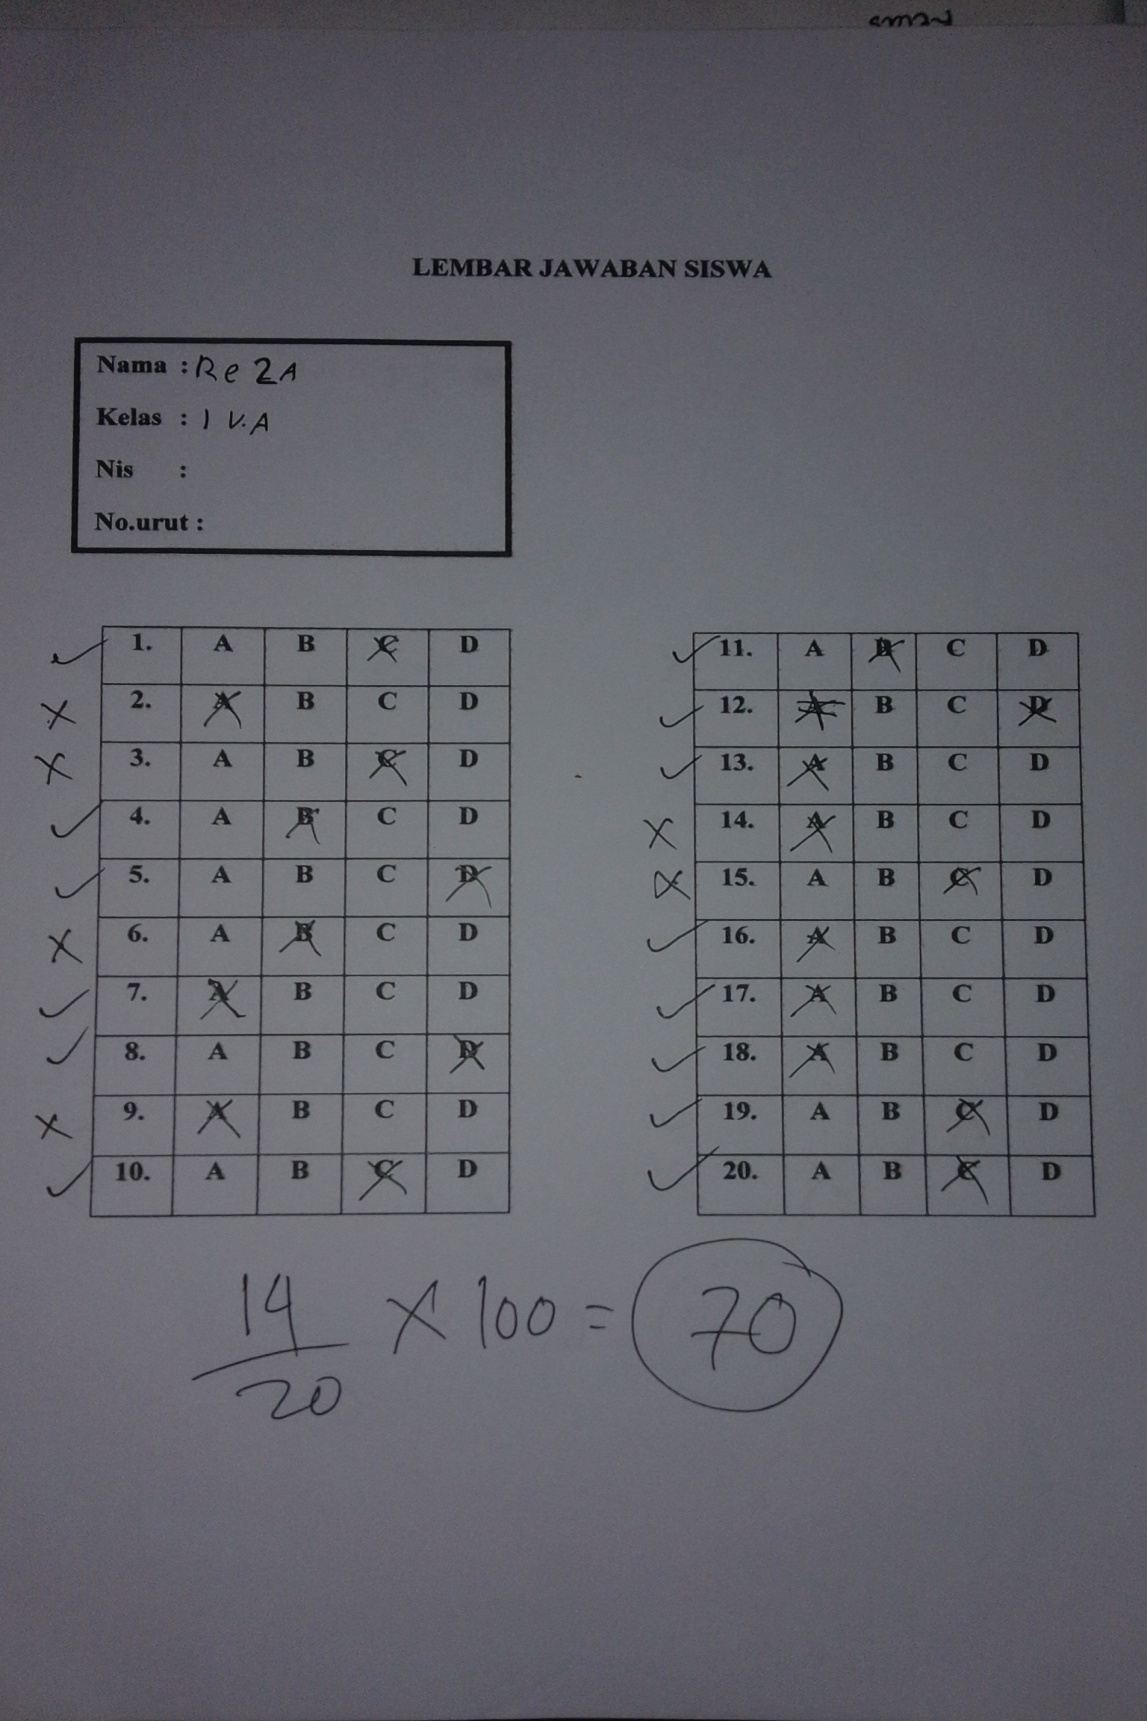 LEMBAR JAWABAN SISWA
Nama : Re2A
Kelas : IV.A
Nis :
No.urut :
1. A B C D
2. A B C D
3. A B C D
4. A B C D
5. A B C D
6. A B C D
7. A B C D
8. A B C D
9. A B C D
10. A B C D
11. A B C D
12. A B C D
13. A B C D
14. A B C D
15. A B C D
16. A B C D
17. A B C D
18. A B C D
19. A B C D
20. A B C D
14/20 X 100 = 70